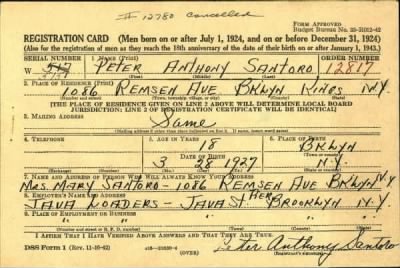 # 12780 cancelled
FORM APPROVED
Budget Bureau No. 33-R012-42
REGISTRATION CARD (Men born on or after July 1, 1924, and on or before December 31, 1924)
(Also for the registration of men as they reach the 18th anniversary of the date of their birth on or after January 1, 1943.)
SERIAL NUMBER 1. NAME (Print) ORDER NUMBER
W PETER ANTHONY SANTORO 12817
(First) (Middle) (Last)
2. PLACE OF RESIDENCE (Print)
1086 REMSEN AVE BKLYN KINGS N.Y.
(Number and street) (Town, township, village, or city) (County) (State)
[THE PLACE OF RESIDENCE GIVEN ON LINE 2 ABOVE WILL DETERMINE LOCAL BOARD
JURISDICTION; LINE 2 OF REGISTRATION CERTIFICATE WILL BE IDENTICAL]
3. MAILING ADDRESS
Same
[Mailing address if other than place indicated on line 2. If same, insert word same]
4. TELEPHONE 5. AGE IN YEARS 6. PLACE OF BIRTH
18 BKLYN
DATE OF BIRTH
3 28 1927 N.Y.
7. NAME AND ADDRESS OF PERSON WHO WILL ALWAYS KNOW YOUR ADDRESS
MRS. MARY SANTORO - 1086 REMSEN AVE BKLYN N.Y.
8. EMPLOYER'S NAME AND ADDRESS
JAVA LOADERS - JAVA ST BROOKLYN N.Y.
9. PLACE OF EMPLOYMENT OR BUSINESS
I AFFIRM THAT I HAVE VERIFIED ABOVE ANSWERS AND THAT THEY ARE TRUE.
DSS Form 1 (Rev. 11-16-42) (OVER) Peter Anthony Santoro